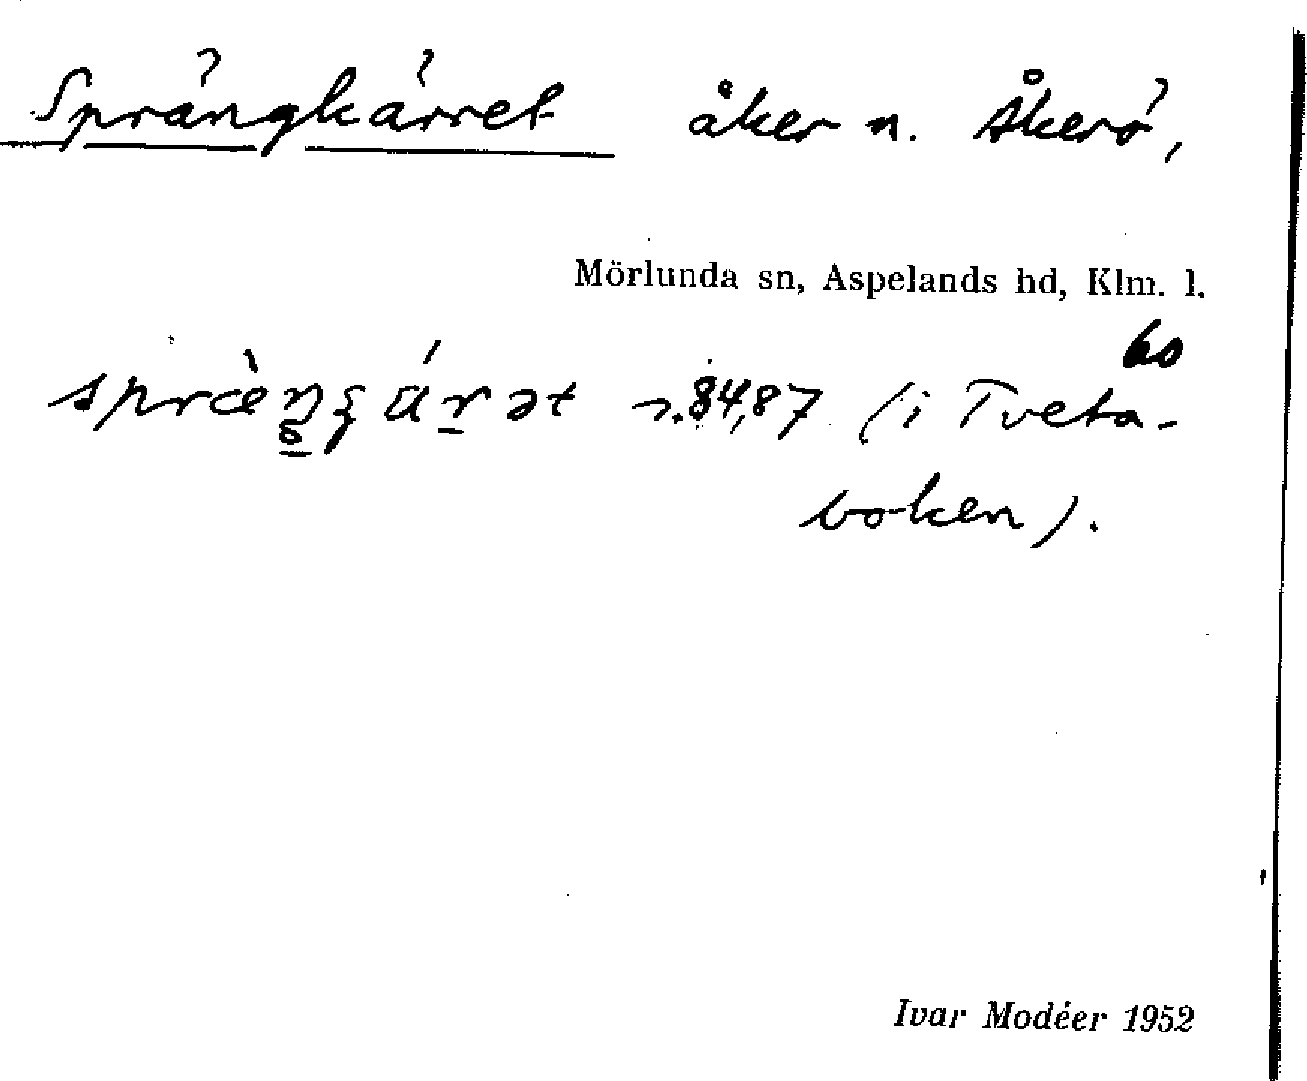 Sprängkärret åker n. Åkerö,
Mörlunda sn, Aspelands hd, Klm. l.
60
s. 84,87 (i Tveta-
boken).
Ivar Modéer 1952